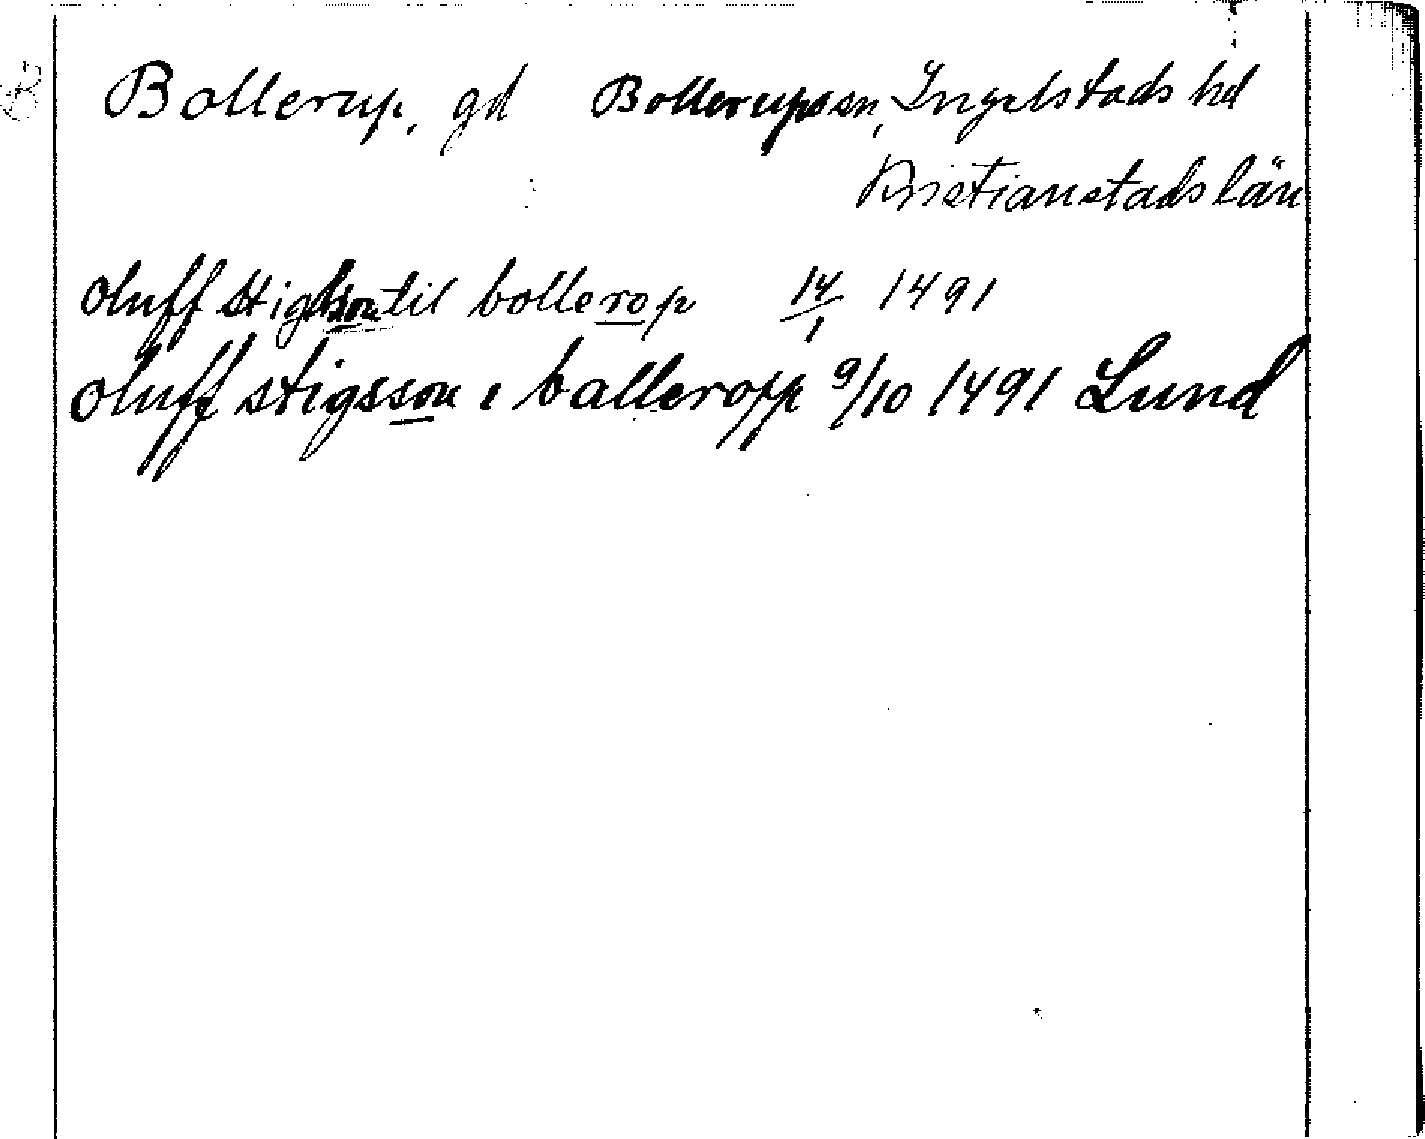 Bollerup, gd Bollerups sn, Ingelstads hd
Kristianstads län
oluff stigsson til bollerop 14/1 1491
oluff stigsson i balleropp 9/10 1491 Lund